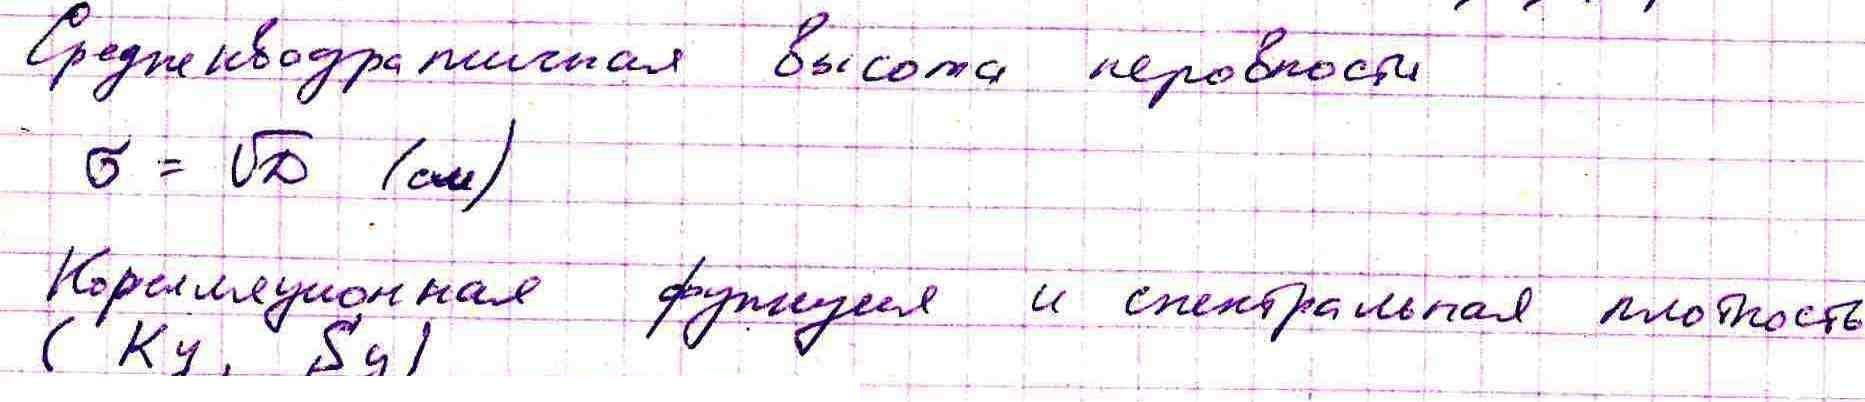 Среднеквадратичная высота неровности
σ = √D (см)
Корелляционная функция и спектральная плотность
( Ky, Sy)